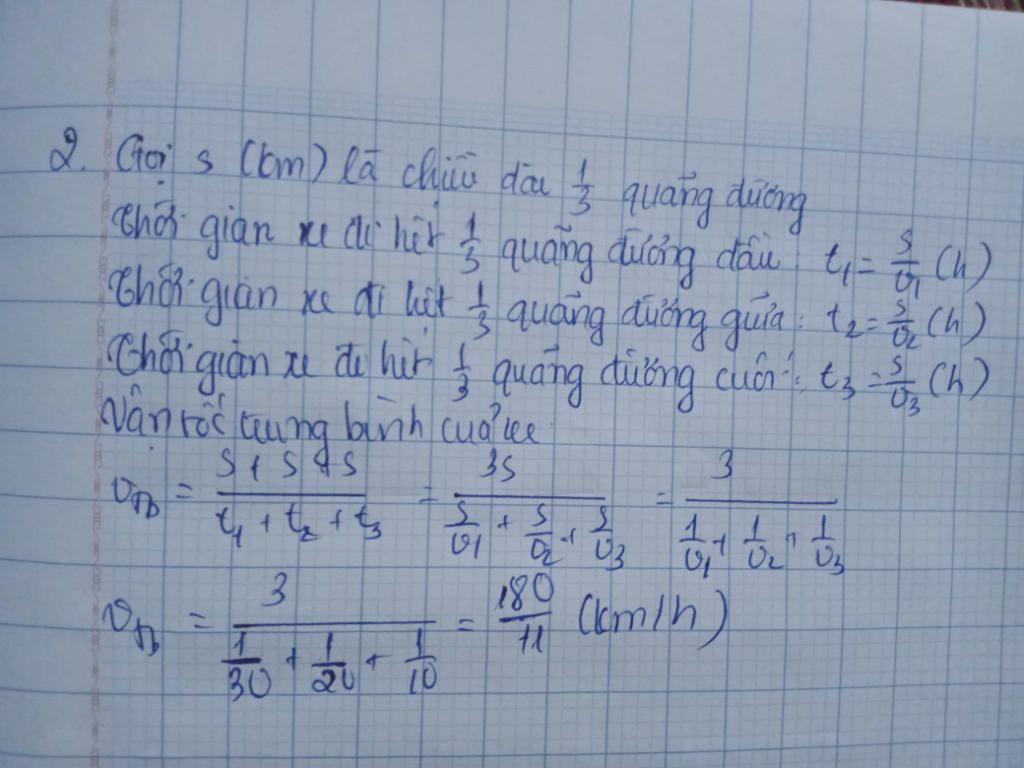 2. Gọi s (km) là chiều dài 1/3 quãng đường
Thời gian xe đi hết 1/3 quãng đường đầu: t₁ = s/v₁ (h)
Thời gian xe đi hết 1/3 quãng đường giữa: t₂ = s/v₂ (h)
Thời gian xe đi hết 1/3 quãng đường cuối: t₃ = s/v₃ (h)
Vận tốc trung bình của xe
v_tb = (s + s + s)/(t₁ + t₂ + t₃) = 3s/(s/v₁ + s/v₂ + s/v₃) = 3/(1/v₁ + 1/v₂ + 1/v₃)
v_tb = 3/(1/30 + 1/20 + 1/10) = 180/11 (km/h)